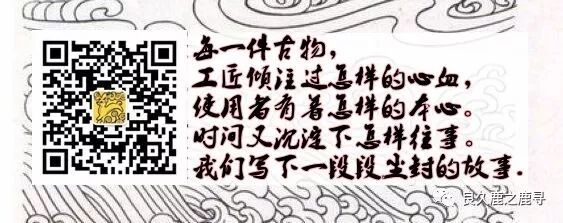 每一件古物，
工匠倾注过怎样的心血，
使用者有着怎样的本心。
时间又沉淀下怎样往事。
我们写下一段段尘封的故事.
良久鹿之鹿寻